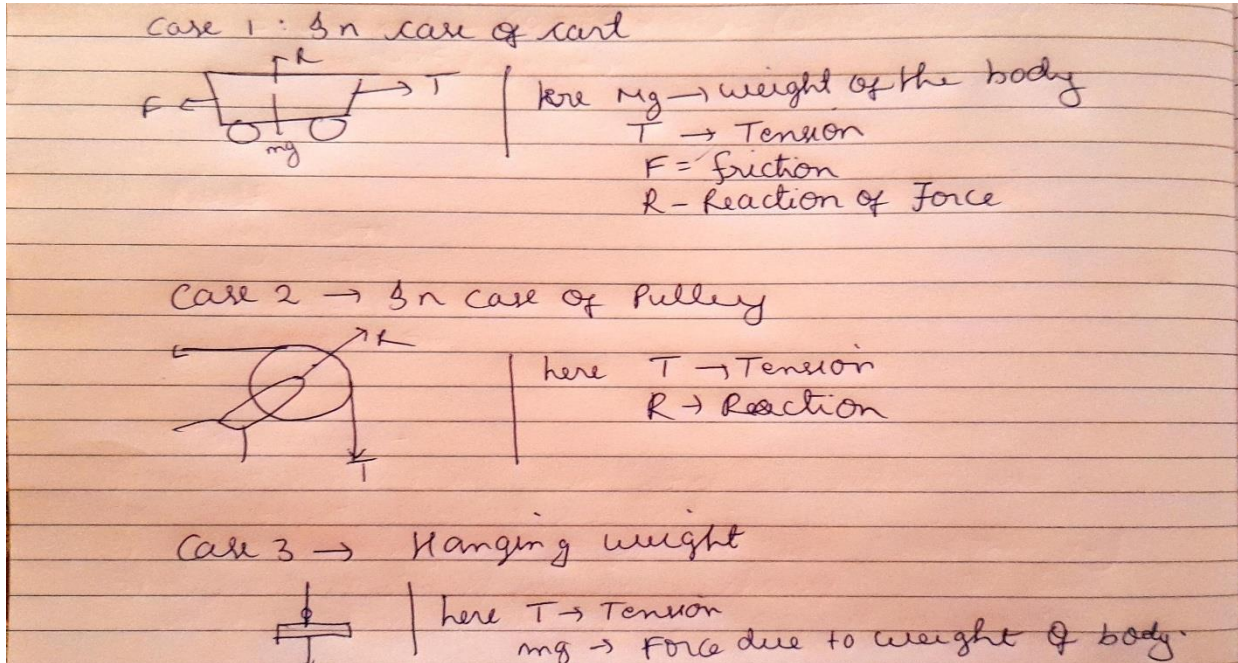 Case 1: In case of cart
R
F T
mg
here Mg → weight of the body
T → Tension
F = friction
R - Reaction of Force
Case 2 → In case of Pulley
R
T
here T → Tension
R → Reaction
Case 3 → Hanging weight
here T → Tension
mg → Force due to weight of body.